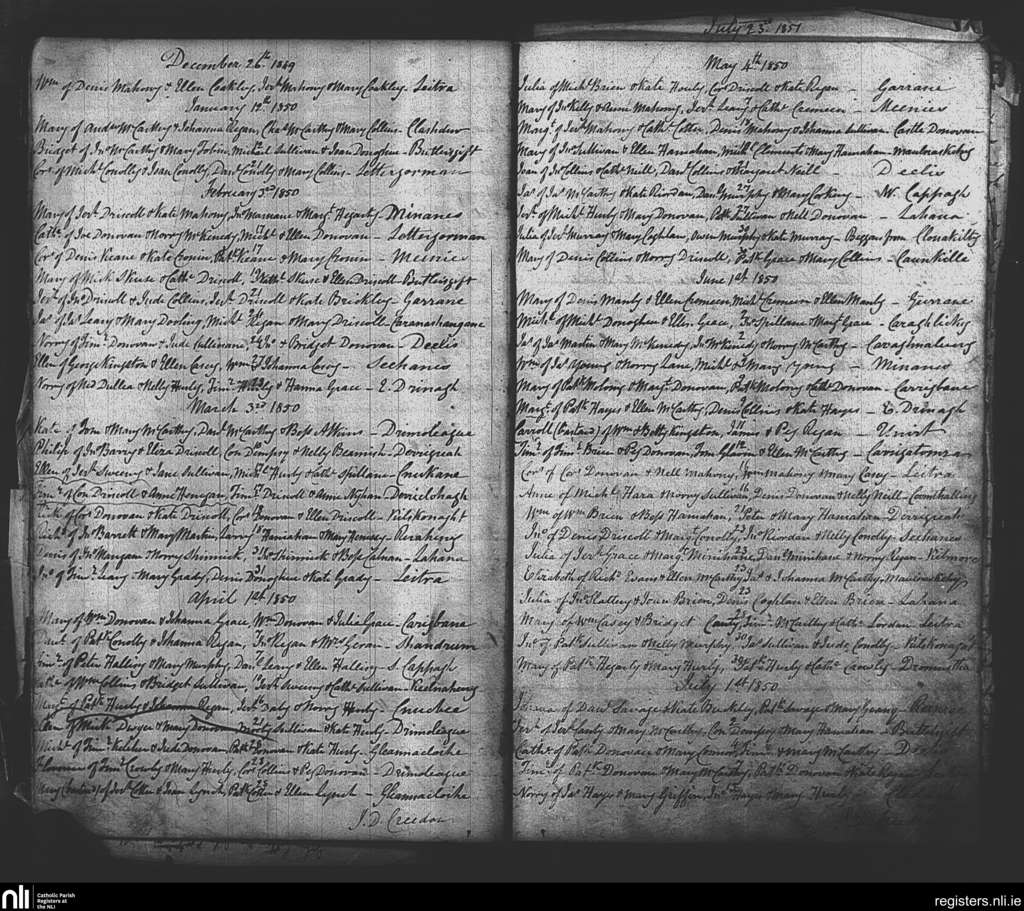 December 26th 1849
Wm of Denis Mahony & Ellen Coakley, Jert Mahony & Mary Coakley - Leitra
January 12th 1850
Mary of Andw McCarthy & Johanna Regan, Chas McCarthy & Mary Collins - Clashduv
Bridget of Jno McCarthy & Mary Tobin, Michl Sullivan & Joan Donoghue - Butlersgift
Cors of Michl Conolly & Joan Conolly, Danl Conolly & Mary Collins - Lettergorman
February 3rd 1850
Mary of Jert Driscoll & Kate Mahony, Jno Marmane & Margt Hegarty - Minanes
Cathe of Jno Donovan & Norry McKenedy, Michl & Ellen Donovan - Lettergorman
17
Cors of Denis Keane & Kate Cronin, Patk Keane & Mary Cronin - Meenies
Mary of Mick Skuse & Cathe Driscoll, Skuse & Ellen Driscoll - Butlersgift
Jert of Jno Driscoll & Jude Collins, Jert Driscoll & Kate Brickley - Garrane
Jas of Jas Leary & Mary Dooling, Michl Regan & Mary Driscoll -
Norry of Timy Donovan & Jude Cullinane, & Bridget Donovan Deelis
Ellen of George Kingston & Ellen Casey, Wm & Johanna Casey - Seehanes
Norry of Ned Dullea & Nelly Hurly, Timy & Hanna Grace - E. Drinagh
March 3rd 1850
Kate of Tom & Mary McCarthy, Danl McCarthy & Bess Atkins - Drimoleague
Philip of Jno Barry & Eliza Driscoll, Con Dempsy & Nelly Beamish - Derrigreat
Ellen of Jert Sweeny & Jane Sullivan, Michl Hurly & Cathe Spillane - Cnuckane
Timy of Con Driscoll & Anne Henegan, Timy Driscoll & Anne - Dereclohagh
of Cors Donovan & Kate Driscoll, Cors Donovan & Ellen Driscoll - Kilskonaght
of Jno Barrett & Mary Martin, Larry Hamahan & Mary Hennesy - Reraheng
Denis of Jno Mangan & Norry Shinnick, Shinnick & Bess Calnan - Lahana
31
Jno of Timy Leary & Mary Grady, Denis Donoghue & Kate Grady - Leitra
April 1st 1850
Mary of Wm Donovan & Johanna Grace, Wm Donovan & Julia Grace - Carrigbane
Danl of Patk Conolly & Johanna Regan, Jno Regan & Mrs - Shandrum
Timy of Peter Hallisy & Mary Murphy, Danl Leary & Ellen Hallisy - S. Cappagh
Cathe of Wm Collins & Bridget Sullivan, Jert Sweeny & Cathe Sullivan - Keelnaheng
of Patk Hurly & Johanna Regan, Jert Daly & Norry Hurly - Cnuckee
Ellen of Mick Dwyer & Mary Donovan, Sullivan & Kate Hurly - Drimoleague
Michl of Timy Kelcher & Jude Donovan, Patk Donovan & Kate Hurly - Gleannacloiche
Florence of Timy Crowly & Mary Hurly, Cors Collins & Peg Donovan - Drimoleague
Mary (bastard) of Jert Cotter & Joan Lynch, Patk Cotter & Ellen Lynch - Gleannacloiche
J. D. Creedon
July 23rd 1851
May 4th 1850
Julia of Michl Brien & Kate Hurly, Cors Driscoll & Kate Regan - Garrane
Mary of Jno Kelly & Anne Mahony, Jert Leary & Cathe Cremeen - Meenies
Margt of Jert Mahony & Cathe Cotter, Denis Mahony & Johanna Sullivan - Castle Donovan
Mary of Jno Sullivan & Ellen Hamahan, Michl Clements & Mary Hamahan -
Joan of Jno Collins & Cathe Neill, Danl Collins & Margaret Neill - Deelis
Jas of Jas McCarthy & Kate Riordan, Danl Murphy & Mary - W. Cappagh
Jert of Michl Hurly & Mary Donovan, Patk & Nell Donovan - Lahana
Julia of Jert Murray & Mary Coghlan, Owen Murphy & Kate Murray - Beggars from Clonakilty
Mary of Denis Collins & Norry Driscoll, Patk Grace & Mary Collins - Caunkille
June 1st 1850
Mary of Denis Manly & Ellen Cremeen, Michl Cremeen & Ellen Manly - Gurrane
Michl of Michl Donoghue & Ellen Grace, Jno Spillane & Margt Grace -
Jas of Jas Martin & Mary McKenedy, Jno McKenedy & Norry McCarthy -
Wm of Jas Young & Norry Lane, Michl & Mary Young - Minanes
Mary of Patk Molony & Margt Donovan, Patk Molony & Cathe Donovan - Carrigbane
Margt of Patk Hayes & Ellen McCarthy, Denis Collins & Kate Hayes - E. Drinagh
Carroll (bastard) of Wm & Betty Kingston, & Peg Regan - Unist
Timy of Timy Brien & Peg Donovan, Tom & Ellen McCarthy -
Cors of Cors Donovan & Nell Mahony, Wm Mahony & Mary Casey - Leitra
16
Anne of Michl Hara & Norry Sullivan, Denis Donovan & Nelly Neill -
Wm of Wm Brien & Bess Hamahan, Peter & Mary Hamahan - Derrigreat
Jno of Denis Driscoll & Mary Conolly, Jno Riordan & Nelly Conolly - Seehanes
23
Julia of Jert Grace & Mary Minihane, Danl Minihane & Norry Regan - Kilmore
23
Elizabeth of Richd Evans & Ellen McCarthy, Jas & Johanna McCarthy,
23
Julia of Jno Slattery & Joan Brien, Denis Coghlan & Ellen Brien - Lahana
Mary of Wm Casey & Bridget Canty, Timy McCarthy & Cathe Lordan - Leitra
30
Jno of Patk Sullivan & Nelly Murphy, Jas Sullivan & Jude Conolly - Kilskonagat
Mary of Patk Hegarty & Mary Hurly, Patk Hurly & Cathe Crowly - Dromnitha
July 1st 1850
of Danl Savage & Kate Buckley, Patk Savage & Mary
Jert of Jert Canty & Mary McCarthy, Con Dempsy & Mary Hamahan - Butlersgift
Cathe of Patk Donovan & Mary Connor, Timy & Mary McCarthy -
Timy of Patk Donovan & Mary McCarthy, Patk Donovan & Kate Regan
Norry of Jas Hayes & Mary Griffin, Jno Hayes & Mary Hurly
nli
Catholic Parish
Registers at
the NLI
registers.nli.ie